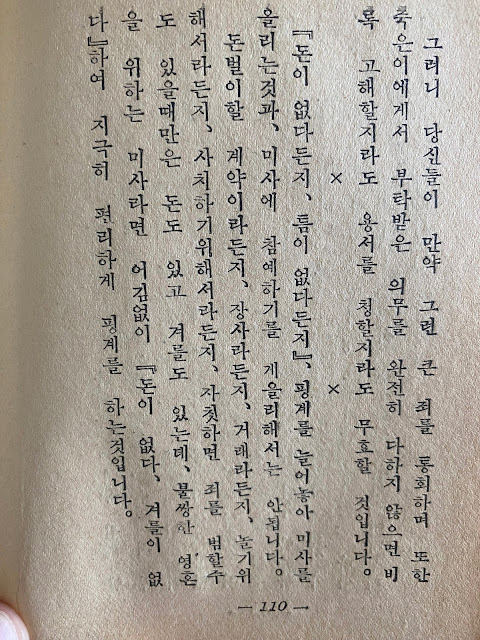 그러니 당신들이 만약 그런 큰 죄를 통회하며 또한
죽은이에게서 부탁받은 의무를 완전히 다하지 않으면 비
록 고해할지라도 용서를 청할지라도 무효할 것입니다。
× ×
『돈이 없다든지、틈이 없다든지』、핑계를 늘어놓아 미사를
올리는것과、미사에 참예하기를 게을리해서는 안됩니다。
돈벌이할 계약이라든지、장사라든지、거래라든지、놀기위
해서라든지、사치하기위해서라든지、자칫하면 죄를 범할수
도 있을때만은 돈도 있고 겨를도 있는데、불쌍한 영혼
을 위하는 미사라면 어김없이 『돈이 없다、겨를이 없
다』하여 지극히 편리하게 핑계를 하는것입니다。
— 110 —